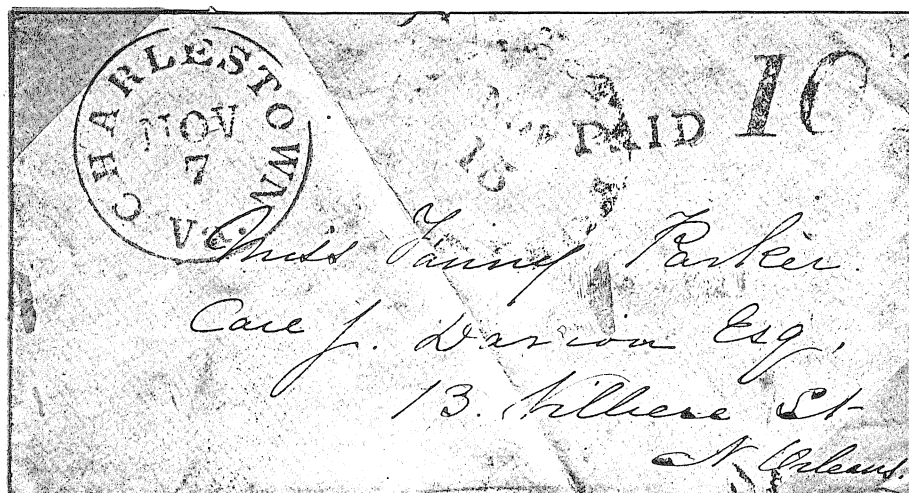 CHARLESTOWN VA.
NOV
7
15
PAID 10
Miss Fanny Parker.
Care J. Esq,
13. Villere St
N Orleans.